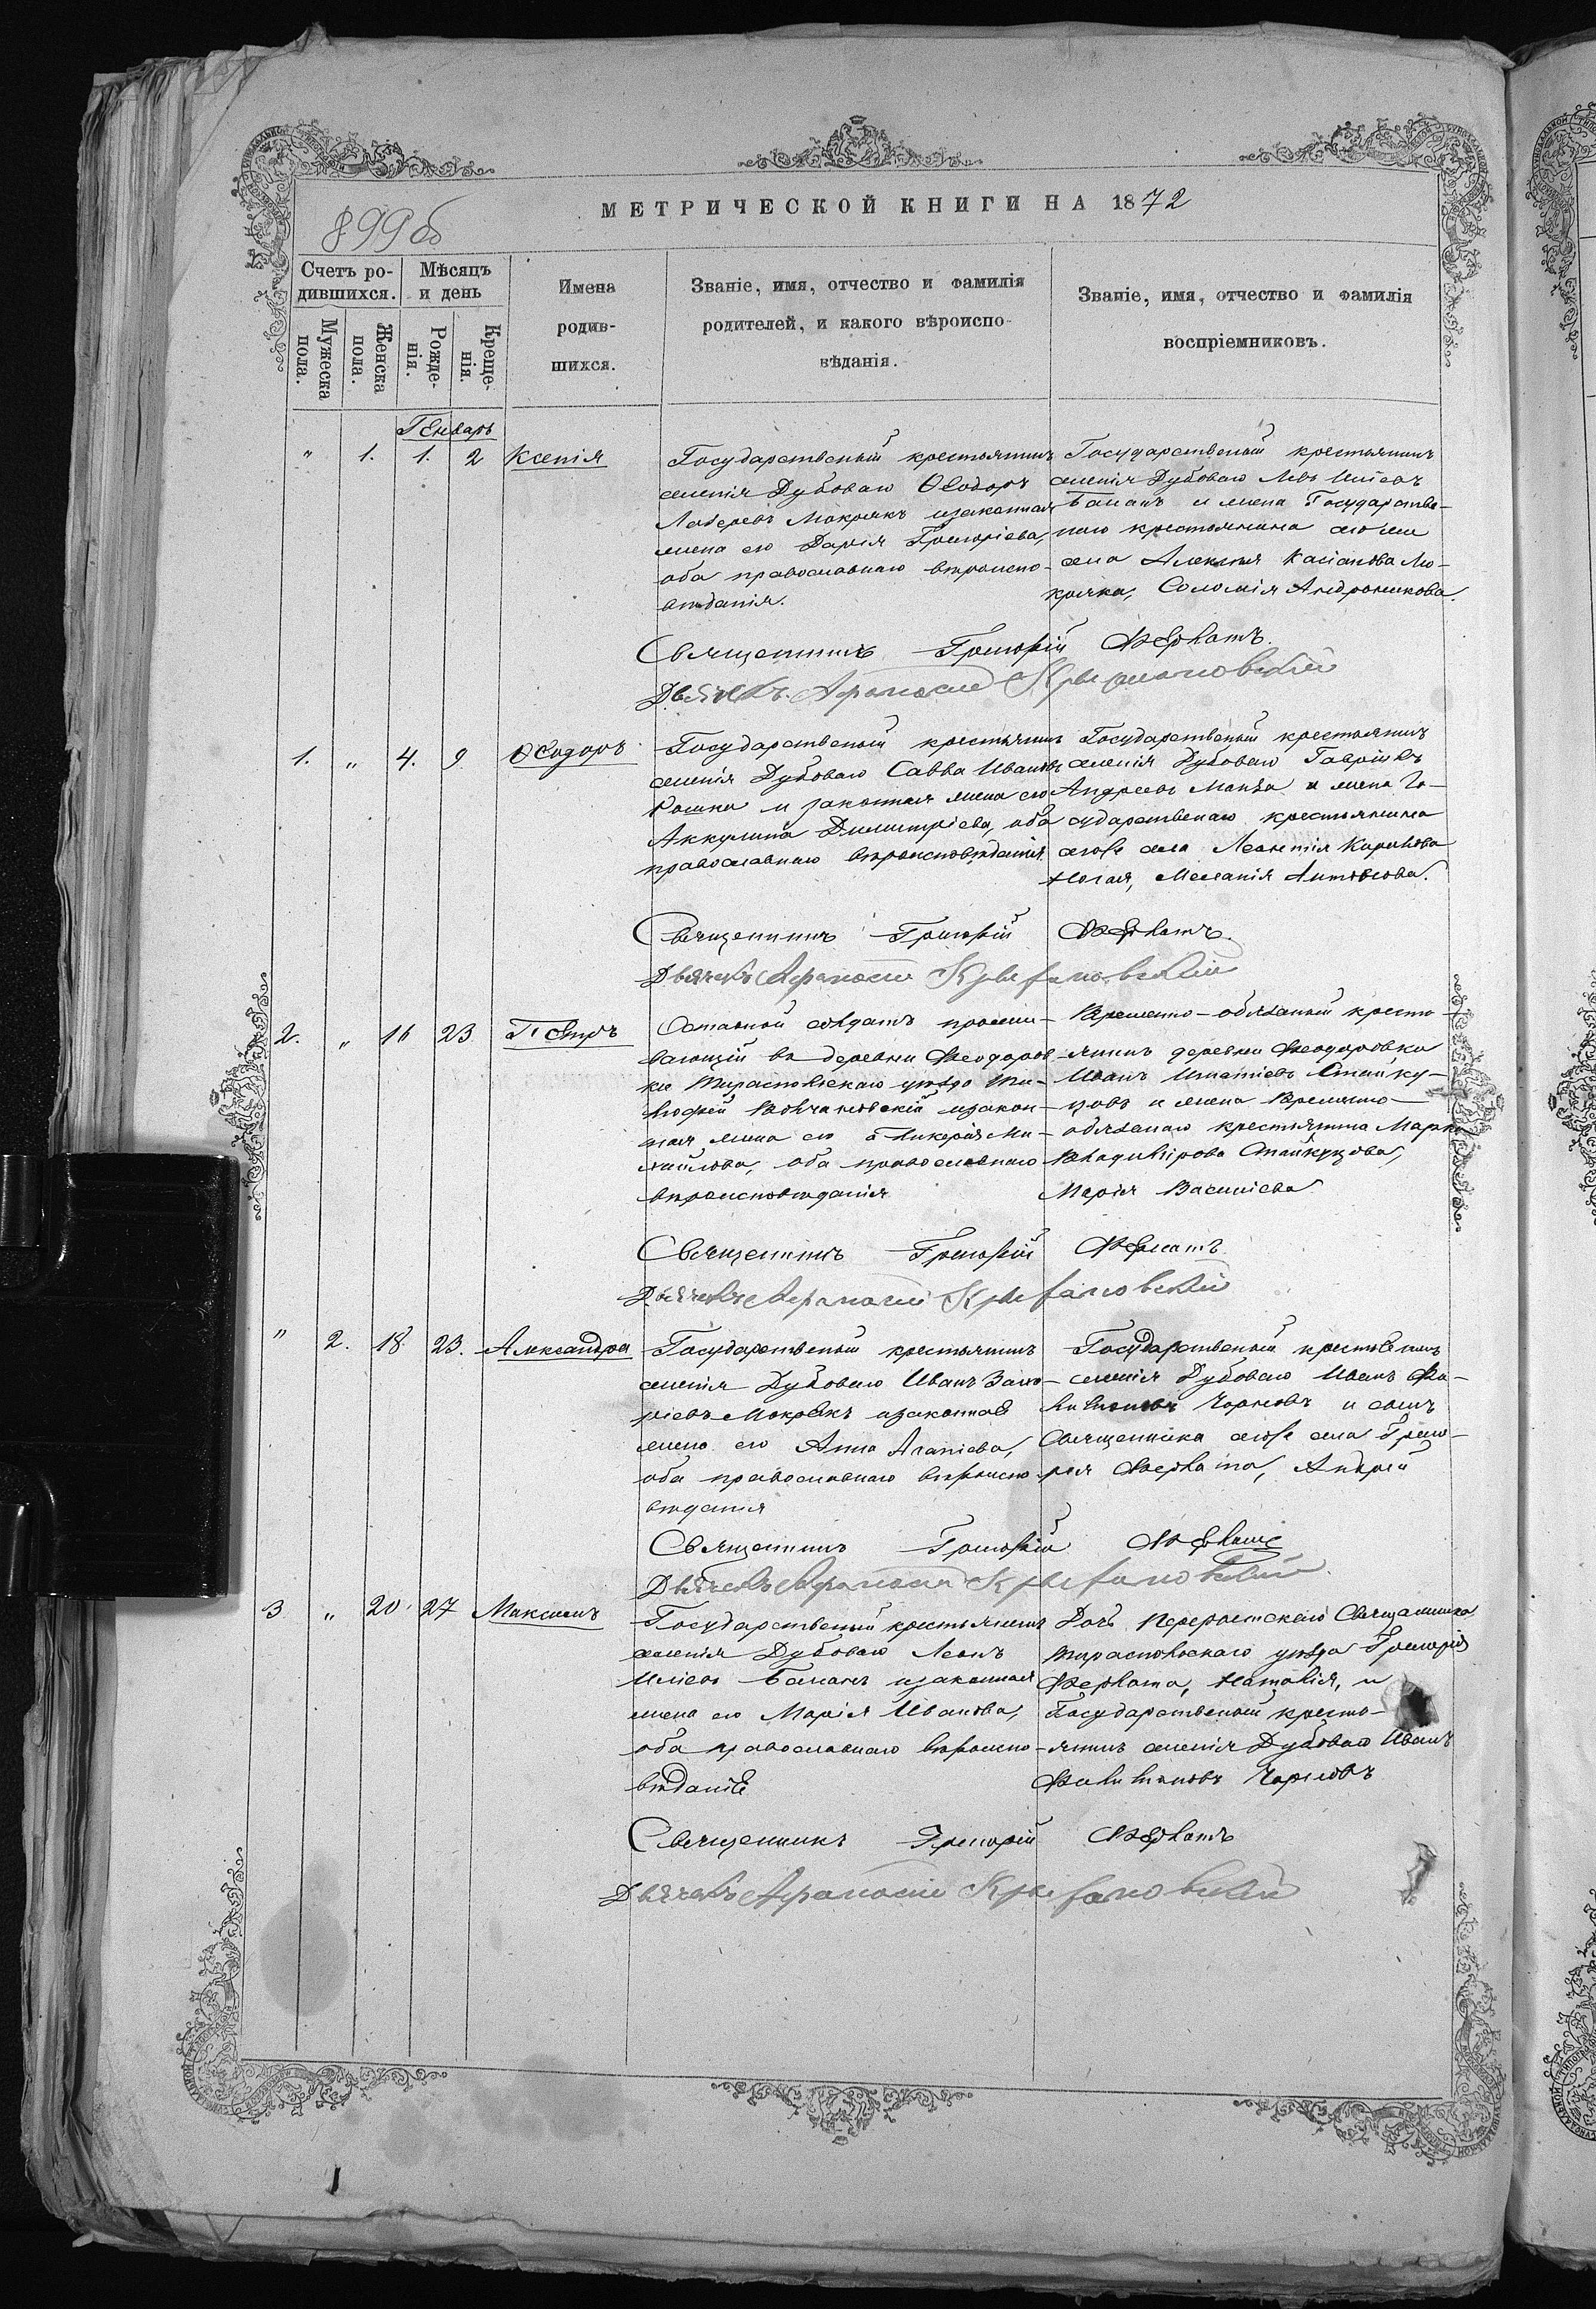 МЕТРИЧЕСКОЙ КНИГИ НА 1872
899 об
Счетъ ро-
дившихся.
Мѣсяцъ
и день
Имена
родив-
шихся.
Званіе, имя, отчество и фамилія
родителей, и какого вѣроиспо-
вѣданія.
Званіе, имя, отчество и фамилія
воспріемниковъ.
Мужеска
пола.
Женска
пола.
Рожде-
нія.
Креще-
нія.
Генварь
" 1. 1. 2 Ксенія
Государственый крестьянинъ
селенія Дубоваго Ѳеодоръ
Лазаревъ Мокрякъ изаконная
жена его Дарія Григоріева,
оба православнаго вѣроиспо-
вѣданія.
Государственый крестьянинъ
селенія Дубоваго Левъ Иліевъ
Баланъ и жена Государстве-
наго крестьянина того же
села Алексѣя Касіанова Мо-
кряка, Соломія Андроникова.
Священникъ Григорій Ферватъ.
Дьячекъ Афанасій Крыжановскій
1. " 4. 9 Ѳеодоръ
Государственый крестьянинъ
селенія Дубоваго Савва Ивановъ
Рошка и законная жена его
Аккулина Димитріева, оба
православнаго вѣроисповѣданія.
Государственый крестьянинъ
селенія Дубоваго Гавріилъ
Андреевъ Манза и жена Го-
сударственаго крестьянина
тогоже села Леонтія Карпова
Ногая, Меланія Антонова.
Священникъ Григорій Ферватъ.
Дьячекъ Афанасій Крыжановскій
2. " 16 23 Петръ
Отставной солдатъ прожи-
вающій въ деревни Феодоров-
ки Тираспольскаго уѣзда Ти-
мофей Волчановскій изакон-
ная жена его Гликерія Ми-
хайлова, оба православнаго
вѣроисповѣданія
Временно-обязаный кресть-
янинъ деревни Феодоровки
Иванъ Игнатіевъ Стайку-
цовъ и жена Временно-
обязанаго крестьянина Марка
Владимірова Стайкуцова,
Марія Василіева
Священникъ Григорій Ферватъ.
Дьячекъ Афанасій Крыжановскій
" 2. 18. 23. Александра
Государственый крестьянинъ
селенія Дубоваго Иванъ Заха-
ріевъ Мокрякъ изаконная
жена его Анна Агапіева,
оба православнаго вѣроиспо-
вѣданія
Государственый крестьянинъ
селенія Дубоваго Иванъ Фи-
липповъ Чорновъ и сынъ
Священика тогоже села Григо-
рія Фервата, Андрей
Священникъ Григорій Ферватъ
Дьячекъ Афанасій Крыжановскій.
3 " 20. 27 Максимъ
Государственый крестьянинъ
селенія Дубоваго Леонъ
Иліевъ Баланъ изаконная
жена его Марія Иванова,
оба православнаго вѣроиспо-
вѣданія
Дочь Священника
Тираспольскаго уѣзда Григорія
Фервата, Наталія, и
Государственый кресть-
янинъ селенія Дубоваго Иванъ
Филипповъ Чорновъ
Священникъ Григорій Ферватъ
Дьячекъ Афанасій Крыжановскій